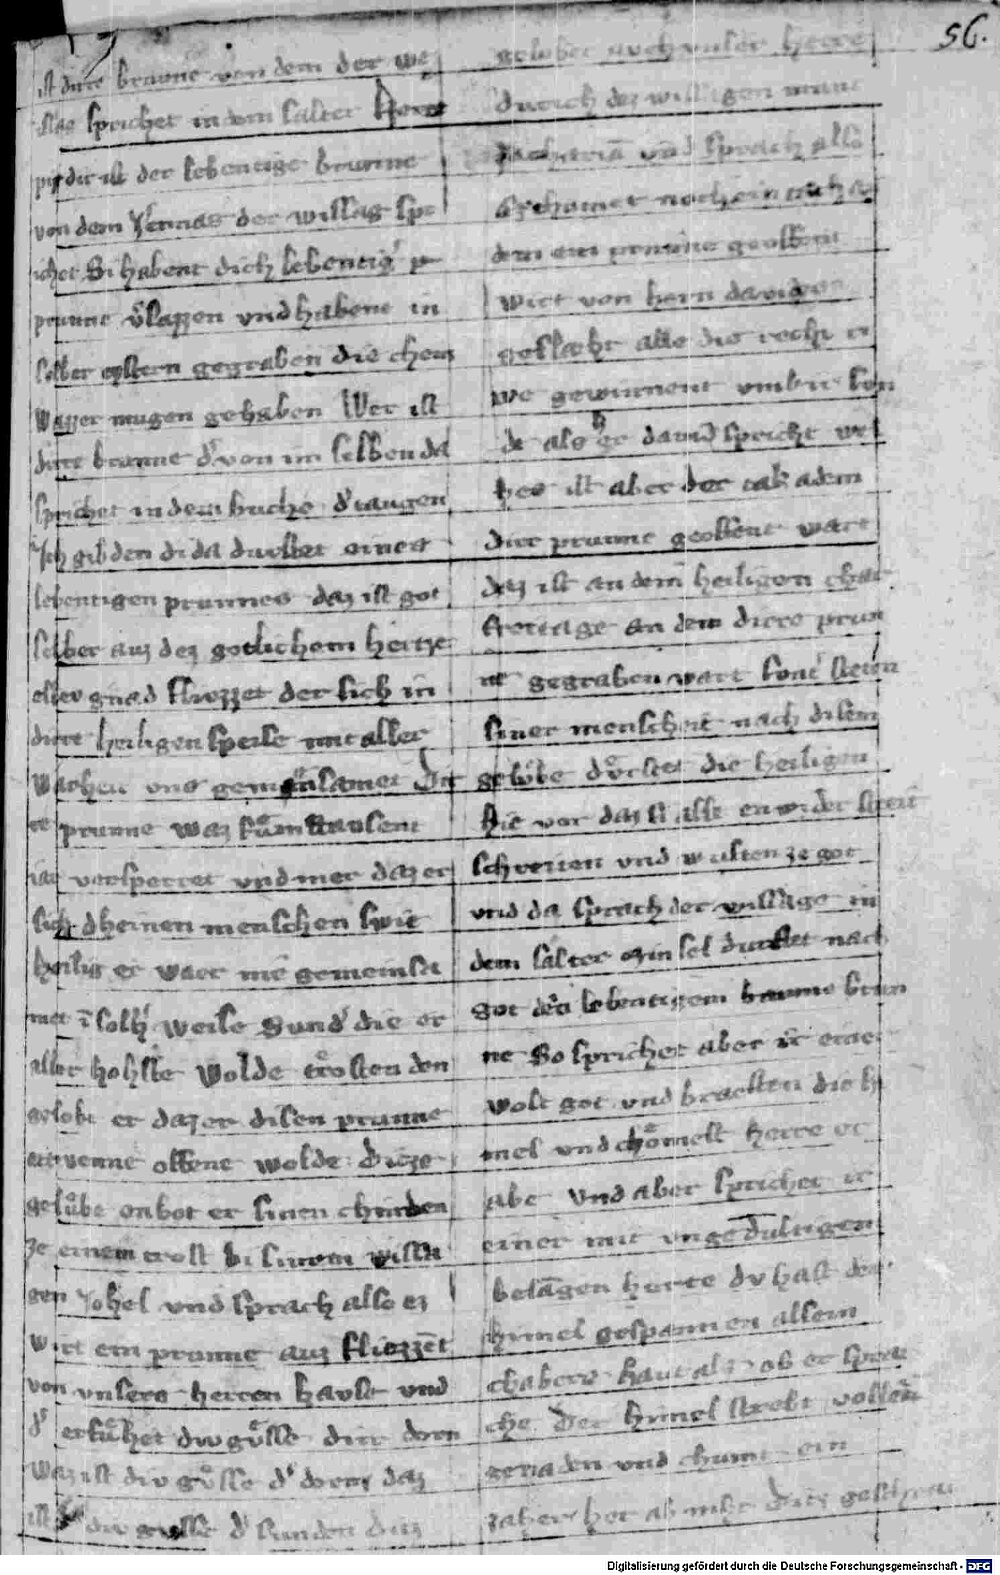 56.
ist dirre brunne von dem der we
issag sprichet in dem salter Herre
pei dir ist der lebentige brunne
von dem Jeremias der wissag spr
ichet Si habent dich lebentigen
prunne v̊lazzen vnd habent in
selber cystern gegraben die chein
wazzer mugen gehaben Wer ist
dirre brunne d' von im selben da
sprichet in dem buche d' taugen
Ich gib den di da durstet eines
lebentigen prunnes daz ist got
selber auz dez gotlichem hertze
elliv gnad fliuzzet der sich in
dirre heiligen speise mit aller
vns gemainsamet Dir
re prunne waz funftausent
iar versperret vnd mer daz er
sich dheinen menschen swie
heilig er waer nie gemeinsa
met ī solh' weise Sund' die er
aller hohste wolde trosten den
gelobt er daz er disen prunne
offene wolde Ditze
geluͦbe enbot er sinen chinden
ze einem trost bi sinem wissa
gen Johel vnd sprach also ez
wirt ein prunne auz fliezzēt
von vnsers herren hause vnd
d' erfuͦhet div guͦsse dirr dorn
Waz ist div guͦsse d' dorn daz
ist div gusse d' sunden Ditz
gelubet auch vnser herre
durich dez willigen munt
zachariā vnd sprach also
noch ein
dem ein prunne geoffent
wirt von hern dauides
geslaeht alle die recht ri
we gewinnent vmb ir sun
de als h'er dauid spricht wel
hes ist aber der tak a dem
dirr prunne geoffent wart
daz ist an dem heiligen char
freitage an dem dirre prun
ne gegraben wart
siner menscheit nach disem
geluͦbe duͦrstet die heiligen
hie vor daz si alle en wider
schreien vnd wusten ze got
vnd da sprach der wissage in
dem salter Min sel durstet nach
got den lebentigem brun
ne So sprichet aber ir einer
wolt got vnd braesten die hi
mel vnd choͦmest herre er
abe Vnd aber sprichet ir
einer mit vngedultigen
belāgen herre dv hast den
himel gespannen allem
haut als ob er sprae
che Der himel strebt vollen
genaden vnd chumt ein
zaher her ab niht Ditz geschrai
Digitalisierung gefördert durch die Deutsche Forschungsgemeinschaft - DFG